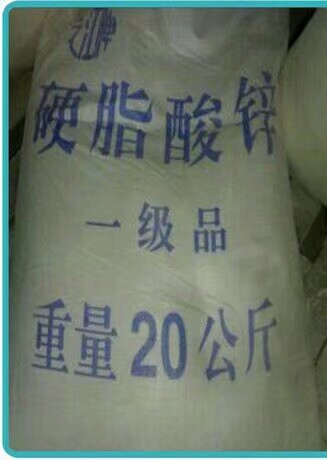 硬脂酸锌
一级品
重量20公斤